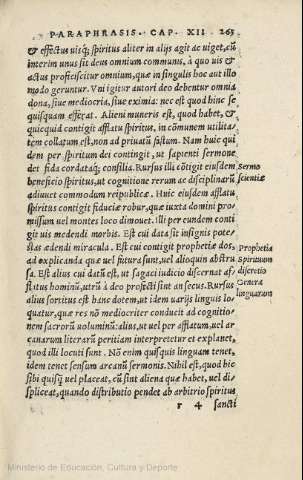 PARAPHRASIS. CAP. XII 265
& effectus uisq; spiritus aliter in alijs agit ac uiget, cũ
interim unus sit deus omnium communis, à quo uis &
actus proficiscitur omnium, quæ in singulis hoc aut illo
modo geruntur. Vni igitur autori deo debentur omnia
dona, siue mediocria, siue eximia: nec est quod hinc se
quisquam efferat. Alieni muneris est, quod habet, &
quicquid contigit afflatu spiritus, in cõmunem utilita-
tem collatum est, non ad priuatũ fastum. Nam huic qui
dem per spiritum dei contingit, ut sapienti sermone
det fida cordataq; consilia. Rursus illi cõtigit eiusdem
beneficio spiritus, ut cognitione rerum ac disciplinarũ
adiuuet commodam reipublicæ. Huic eiusdem afflatu
spiritus contigit fiduciæ robur, quæ iuxta domini pro-
missum uel montes loco dimouet. Illi per eundem conti
git uis medendi morbis. Est cui data sit insignis pote-
stas ædendi miracula. Est cui contigit prophetiæ dos,
ad explicanda quæ uel futura sunt, uel alioquin abstru
sa. Est alius cui datũ est, ut sagaci iudicio discernat af-
flatus hominũ, utrũ à deo profecti sint an secus. Rursus
alius sortitus est hanc dotem, ut idem uarijs linguis lo-
quatur, quæ res nõ mediocriter conducit ad cognitio-
nem sacrorũ uoluminũ: alius, ut uel per afflatum, uel ar
canarum literarũ peritiam interpretetur et explanet,
quod illi locuti sunt. Nõ enim quisquis linguam tenet,
idem tenet sensum arcani sermonis. Nihil est, quod hic
sibi quisq; uel placeat, cũ sint aliena quæ habet, uel di-
spliceat, quando distributio pendet ab arbitrio spiritus
r 4 sancti
Sermo
scientiæ
Prophetia
Spirituum
discretio
Genera
linguarum
Ministerio de Educación, Cultura y Deporte